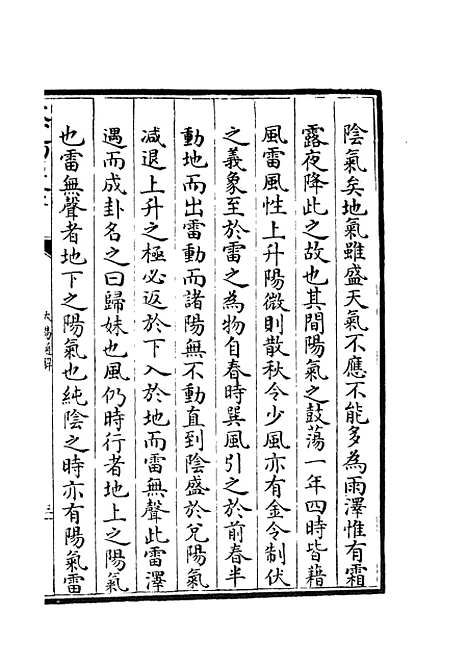 陰氣矣地氣雖盛天氣不應不能多為雨澤惟有霜
露夜降此之故也其間陽氣之鼓蕩一年四時皆藉
風雷風性上升陽微則散秋令少風亦有金令制伏
之義象至於雷之為物自春時巽風引之於前春半
動地而出雷動而諸陽無不動直到陰盛於兌陽氣
减退上升之極必返於下入於地而雷無聲此雷澤
遇而成卦名之曰歸妹也風仍時行者地上之陽氣
也雷無聲者地下之陽氣也純陰之時亦有陽氣雷
大易通解
三